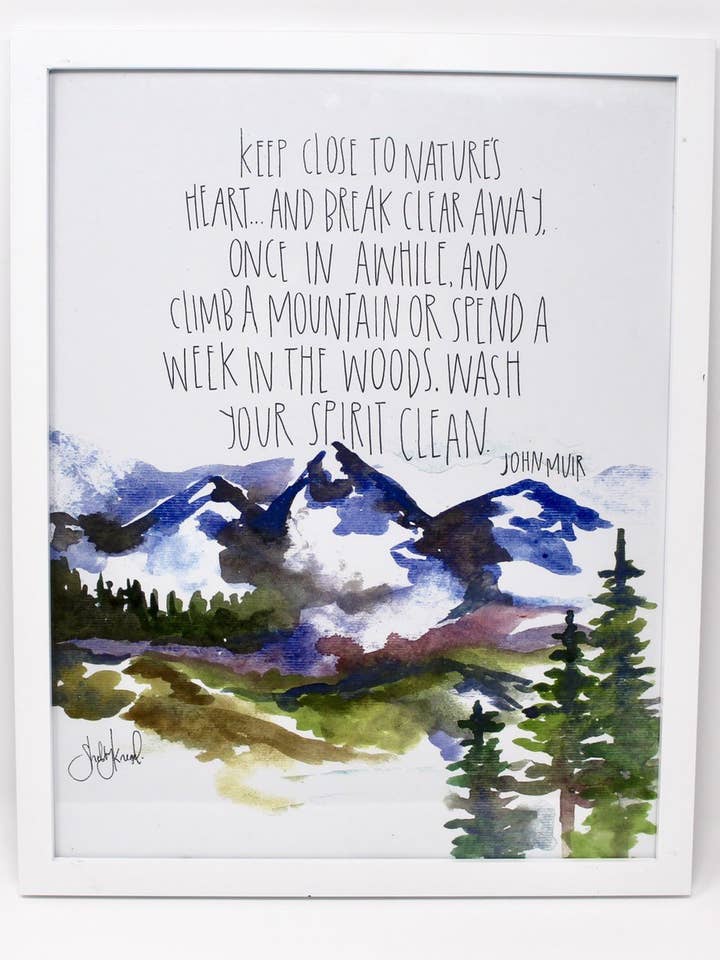 KEEP CLOSE TO NATURE'S
HEART... AND BREAK CLEAR AWAY,
ONCE IN AWHILE, AND
CLIMB A MOUNTAIN OR SPEND A
WEEK IN THE WOODS. WASH
YOUR SPIRIT CLEAN.
JOHN MUIR